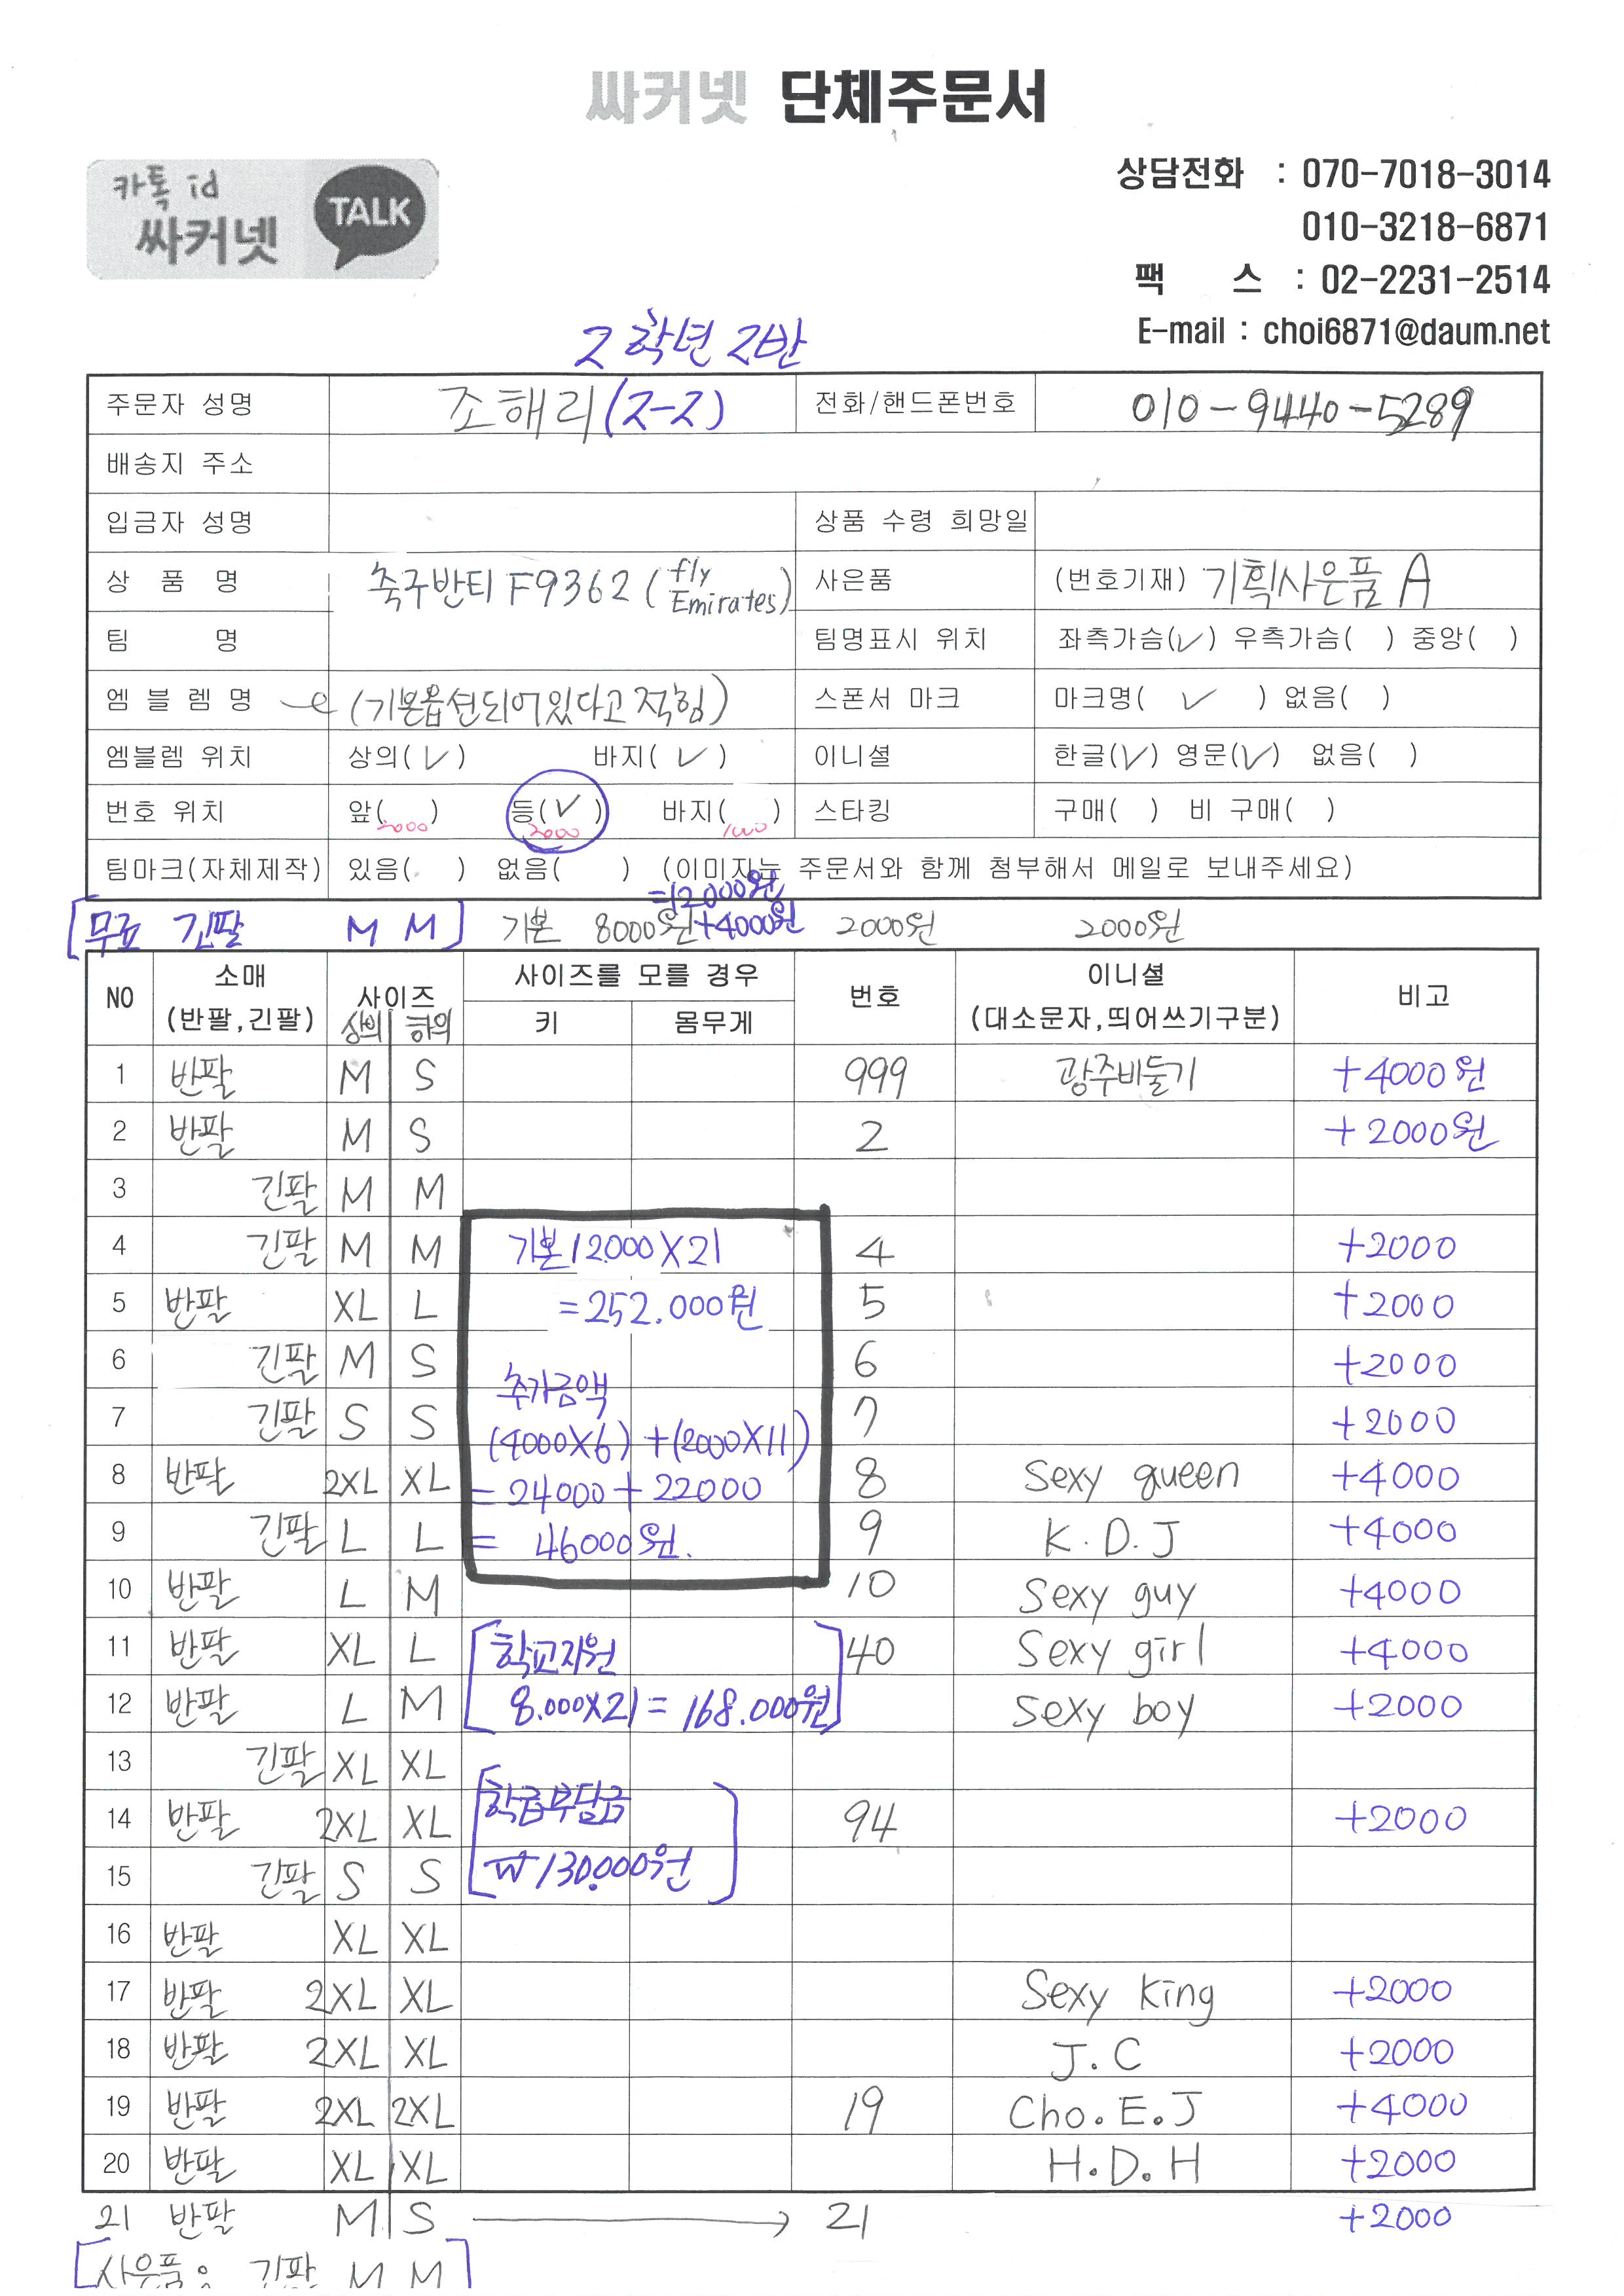 싸커넷 단체주문서
카톡 id
싸커넷
TALK
상담전화 : 070-7018-3014
010-3218-6871
팩 스 : 02-2231-2514
E-mail : choi6871@daum.net
2학년 2반
주문자 성명 조해리(2-2) 전화/핸드폰번호 010-9440-5289
배송지 주소
입금자 성명 상품 수령 희망일
상 품 명 축구반티 F9362 (fly Emirates) 사은품 (번호기재) 기획사은품 A
팀 명 팀명표시 위치 좌측가슴(✓) 우측가슴( ) 중앙( )
엠 블 렘 명 (기본옵션되어있다고 적힘) 스폰서 마크 마크명( ✓ ) 없음( )
엠블렘 위치 상의(✓) 바지(✓) 이니셜 한글(✓) 영문(✓) 없음( )
번호 위치 앞( ) 등(✓) 바지( ) 스타킹 구매( ) 비 구매( )
2000 2000 1000
팀마크(자체제작) 있음( ) 없음( ) (이미지는 주문서와 함께 첨부해서 메일로 보내주세요)
=12000원
[무료 긴팔 M M] 기본 8000원+4000원 2000원 2000원
NO 소매 (반팔,긴팔) 사이즈 상의 하의 사이즈를 모를 경우 키 몸무게 번호 이니셜 (대소문자,띄어쓰기구분) 비고
1 반팔 M S 999 광주비둘기 +4000원
2 반팔 M S 2 +2000원
3 긴팔 M M
4 긴팔 M M 기본12000X21 4 +2000
5 반팔 XL L =252.000원 5 +2000
6 긴팔 M S 추가금액 6 +2000
7 긴팔 S S (4000X6)+(2000X11) 7 +2000
8 반팔 2XL XL =24000+22000 8 Sexy queen +4000
9 긴팔 L L = 46000원. 9 K.D.J +4000
10 반팔 L M 10 Sexy guy +4000
11 반팔 XL L [학교지원 40 Sexy girl +4000
12 반팔 L M 8.000X21=168.000원] Sexy boy +2000
13 긴팔 XL XL
14 반팔 2XL XL [학급부담금 94 +2000
15 긴팔 S S ₩130.000원]
16 반팔 XL XL
17 반팔 2XL XL Sexy King +2000
18 반팔 2XL XL J.C +2000
19 반팔 2XL 2XL 19 Cho.E.J +4000
20 반팔 XL XL H.D.H +2000
21 반팔 M S → 21 +2000
[사은품: 긴팔 M M]